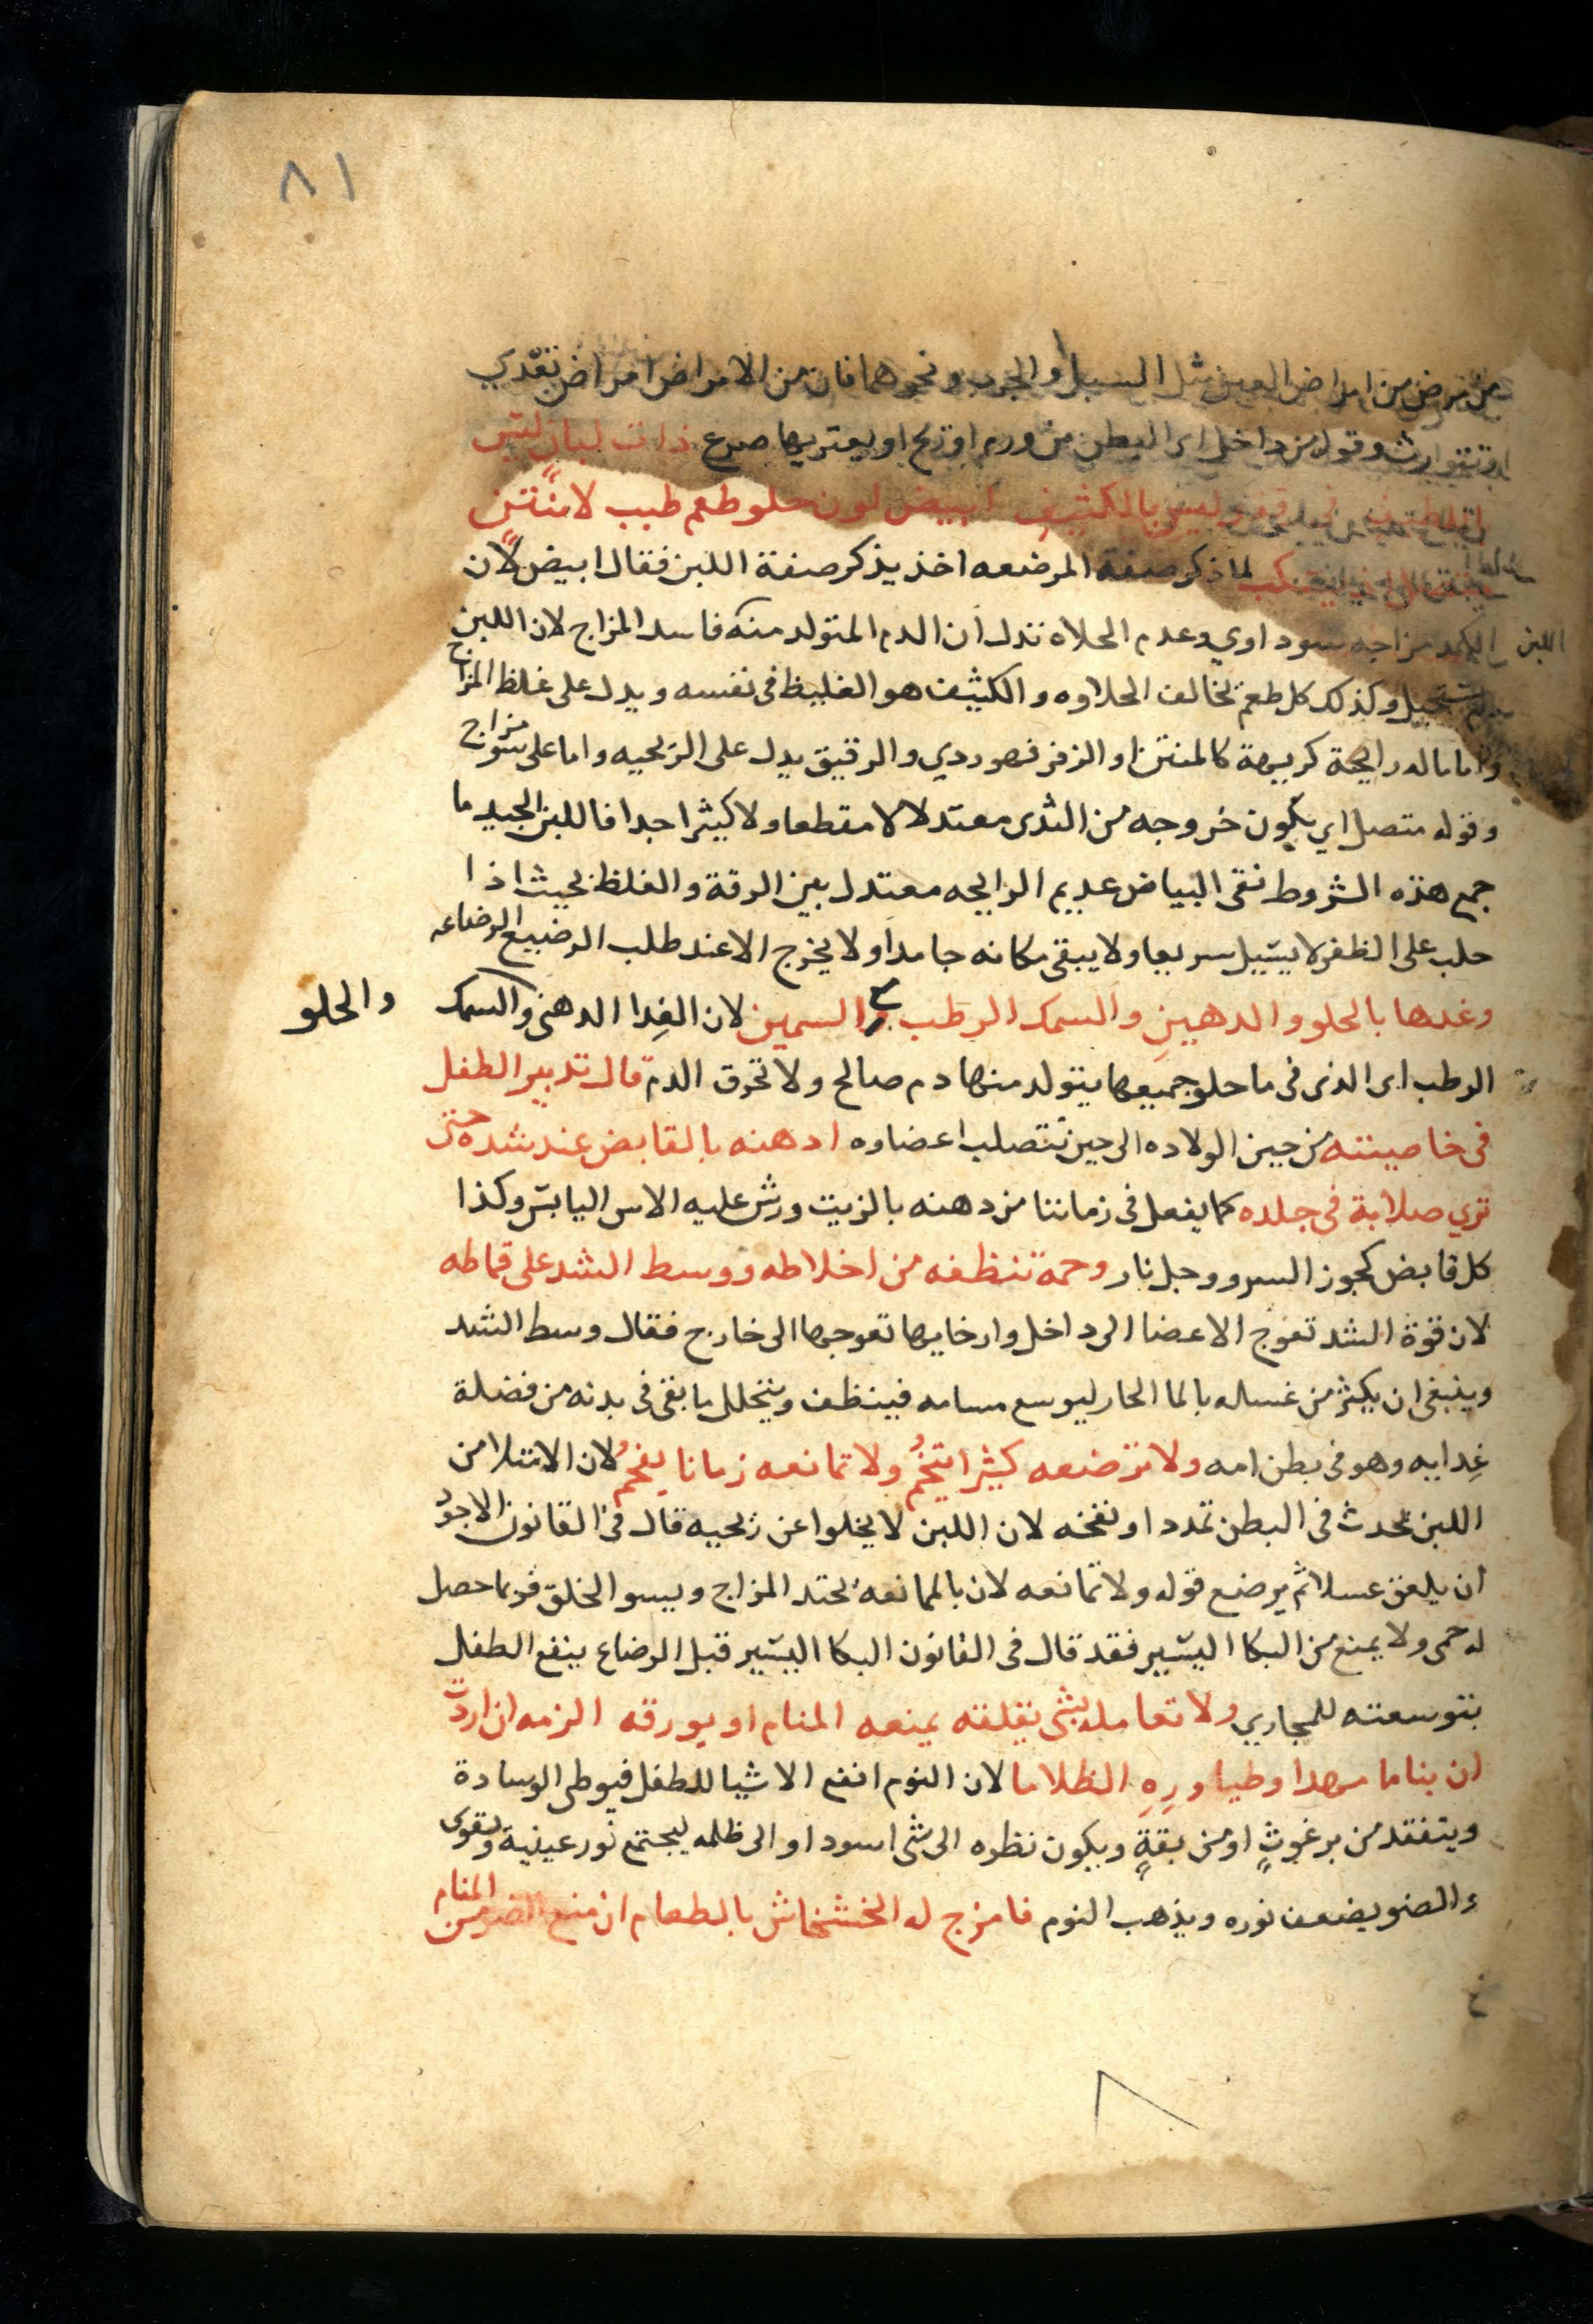 ٨١
من مرض من امراض العين مثل السبل والجرب ونحوهما فان من الامراض امراض تعدي
وتتوارث وقوله من داخل اى البطن من ورم او ريح او يعتريها صرع ذات لبان ليس
بالكثيف ابيض لون حلو طعم طيب لا منتن
لما ذكر صفة المرضعه اخذ يذكر صفة اللبن فقال ابيض لان
اللبن الكمد مزاجه سوداوي وعدم الحلاه تدل ان الدم المتولد منه فاسد المزاج لان اللبن
وكذلك كل طعم يخالف الحلاوه والكثيف هو الغليظ فى نفسه ويدل على غلظ المزاج
واما ماله رايحة كريهة كالمنتن او الزفر فهو ردي والرقيق يدل على الريحيه واما على سو مزاج
وقوله متصل اي يكون خروجه من الثدى معتدلا لا مقطعا ولا كثيرا جدا فاللبن الجيد ما
جمع هذه الشروط نقى البياض عديم الرايحه معتدل بين الرقة والغلظ بحيث اذا
حلب على الظفر لا يسيل سريعا ولا يبقى مكانه جامدا ولا يخرج الا عند طلب الرضيع الرضاعه
وغدها بالحلو والدهين والسمك الرطب والسمين لان الغدا الدهنى والسمك
والحلو
الرطب اى الذى فى ماحلو جميعها يتولد منها دم صالح ولا تحرق الدم قال تدبير الطفل
فى خاصيته من حين الولاده الى حين تتصلب اعضاوه ادهنه بالقابض عند شده حتى
تري صلابة فى جلده كما يفعل فى زماننا من دهنه بالزيت ورش عليه الاس اليابس وكذا
كل قابض كجوز السرو وجلنار وحمة تنظفه من اخلاطه ووسط الشد على قماطه
لان قوة الشد تعوج الاعضا الى داخل وارخايها تعوجها الى خارج فقال وسط الشد
وينبغى ان يكثر من غساله بالما الحار ليوسع مسامه فينظف ويتحلل ما بقى فى بدنه من فضلة
غدايه وهو فى بطن امه ولا ترضعه كثيرا يتخم ولا تمانعه زمانا يفحم لان الامتلا من
اللبن يحدث فى البطن تمددا ونفخه لان اللبن لا يخلوا عن ريحيه قال فى القانون الاجود
ان يلعق عسلا ثم يرضع قوله ولا تمانعه لان بالممانعه يحتد المزاج ويسو الخلق فربما حصل
له حمى ولا يمنع من البكا اليسير فقد قال فى القانون البكا اليسير قبل الرضاع ينفع الطفل
بتوسعته للمجاري ولا تعامله بشى يقلقه يمنعه المنام او يورقه الزمه ان اردت
ان يناما مهدا وطيا وره الظلاما لان النوم انفع الاشيا للطفل فيوطى الوسادة
ويتفقد من برغوث او من بقة ويكون نظره الى شى اسود او الى ظلمه ليجتمع نور عينية ويقوى
والضو يضعف نوره ويذهب النوم فامزج له الخشخاش بالطعام ان منع الضو من المنام